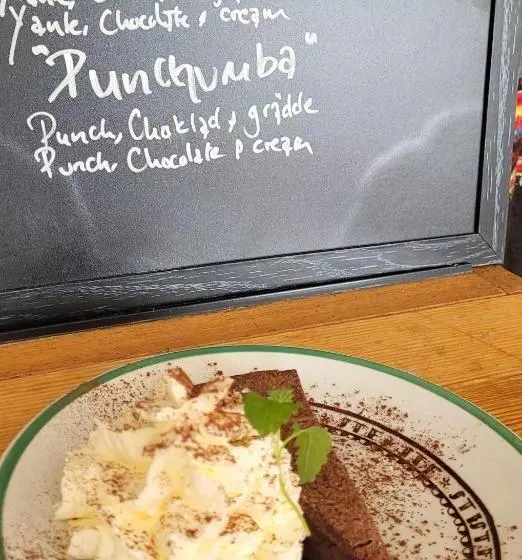 Yank, Chocolate & cream
"Punchumba"
Punch, Choklad & grädde
Punch, Chocolate & cream